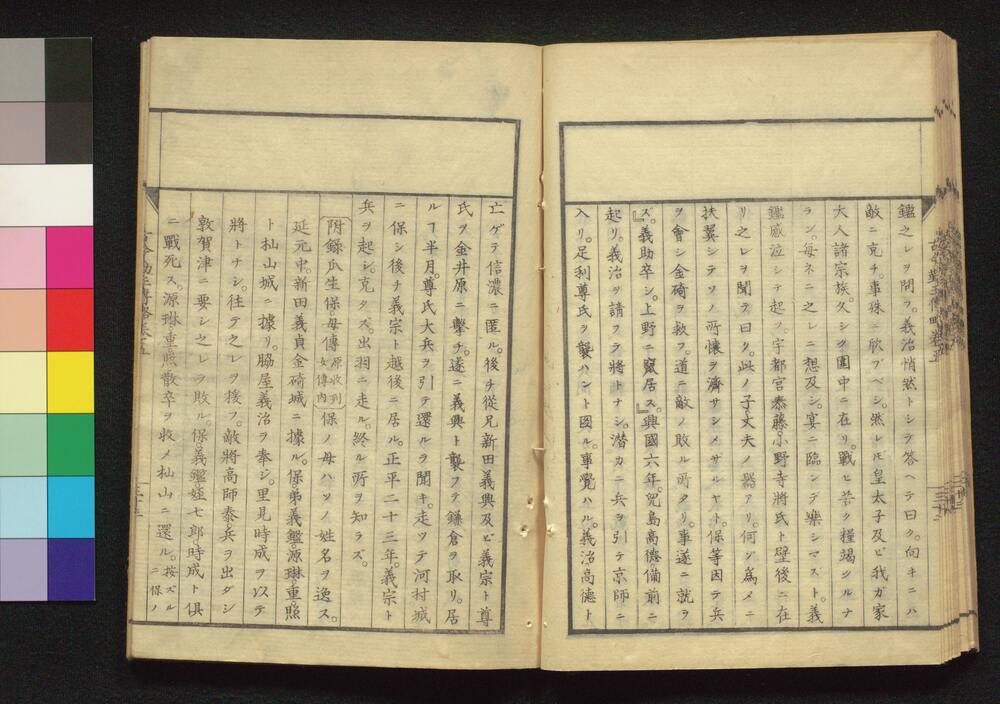 鑑之レヲ問フ。義治悄然トシテ答ヘテ曰ク。向キニハ
敵ニ克チ。事殊ニ欣ブベシ。然レㇳモ皇太子及ビ我ガ家
大人諸宗族。久シク圍中ニ在リ。戰ヒ苦ク糧竭ツルナ
ラン。毎ネニ之レニ想及シ。宴ニ臨ンデ樂シマズト。義
鑑感泣シテ起ツ。宇都宮泰藤。小野寺將氏ト壁後ニ在
リ之レヲ聞テ曰ク。此ノ子丈夫ノ器アリ。何ン爲メニ
扶翼シテソノ所懷ヲ濟サシメザルヤト。保等因テ兵
ヲ會シ金碕ヲ救フ。道ニ敵ノ敗ル所タリ。事遂ニ就ラ
ズ。義助卒シ。上野ニ竄居ス。』興國六年。兒島高德。備前ニ
起リ。義治ヲ請フテ將トナシ。潜カニ兵ヲ引テ京師ニ
入リ。足利尊氏ヲ襲ハント圖ル。事覺ハル。義治高德ト
亡ゲテ信濃ニ匿ル。後チ從兄新田義興及ビ義宗ト尊
氏ヲ金井原ニ擊チ。遂ニ義興ト襲フテ鎌倉ヲ取リ。居
ルヿ半月。尊氏大兵ヲ引テ還ルヲ聞キ。走ツテ河村城
ニ保シ後チ義宗ト越後ニ居ル。正平二十三年。義宗ト
兵ヲ起シ。克タズ。出羽ニ走ル。終ル所ヲ知ラズ。
附錄瓜生保ノ母傳原收列女傳内保ノ母ハソノ姓名ヲ逸ス。
延元中。新田義貞金碕城ニ據ル。保。弟義鑑源琳重照
ト杣山城ニ據リ。脇屋義治ヲ奉ジ。里見時成ヲシテ
將トナシ。往テ之レヲ援フ。敵將高師泰兵ヲ出ダシ
敦賀津ニ要シ之レヲ敗ル。保。義鑑。姪七郎。時成ト俱
ニ戰死ス。源琳重照散卒ヲ收メ杣山ニ還ル。按ズルニ保ノ